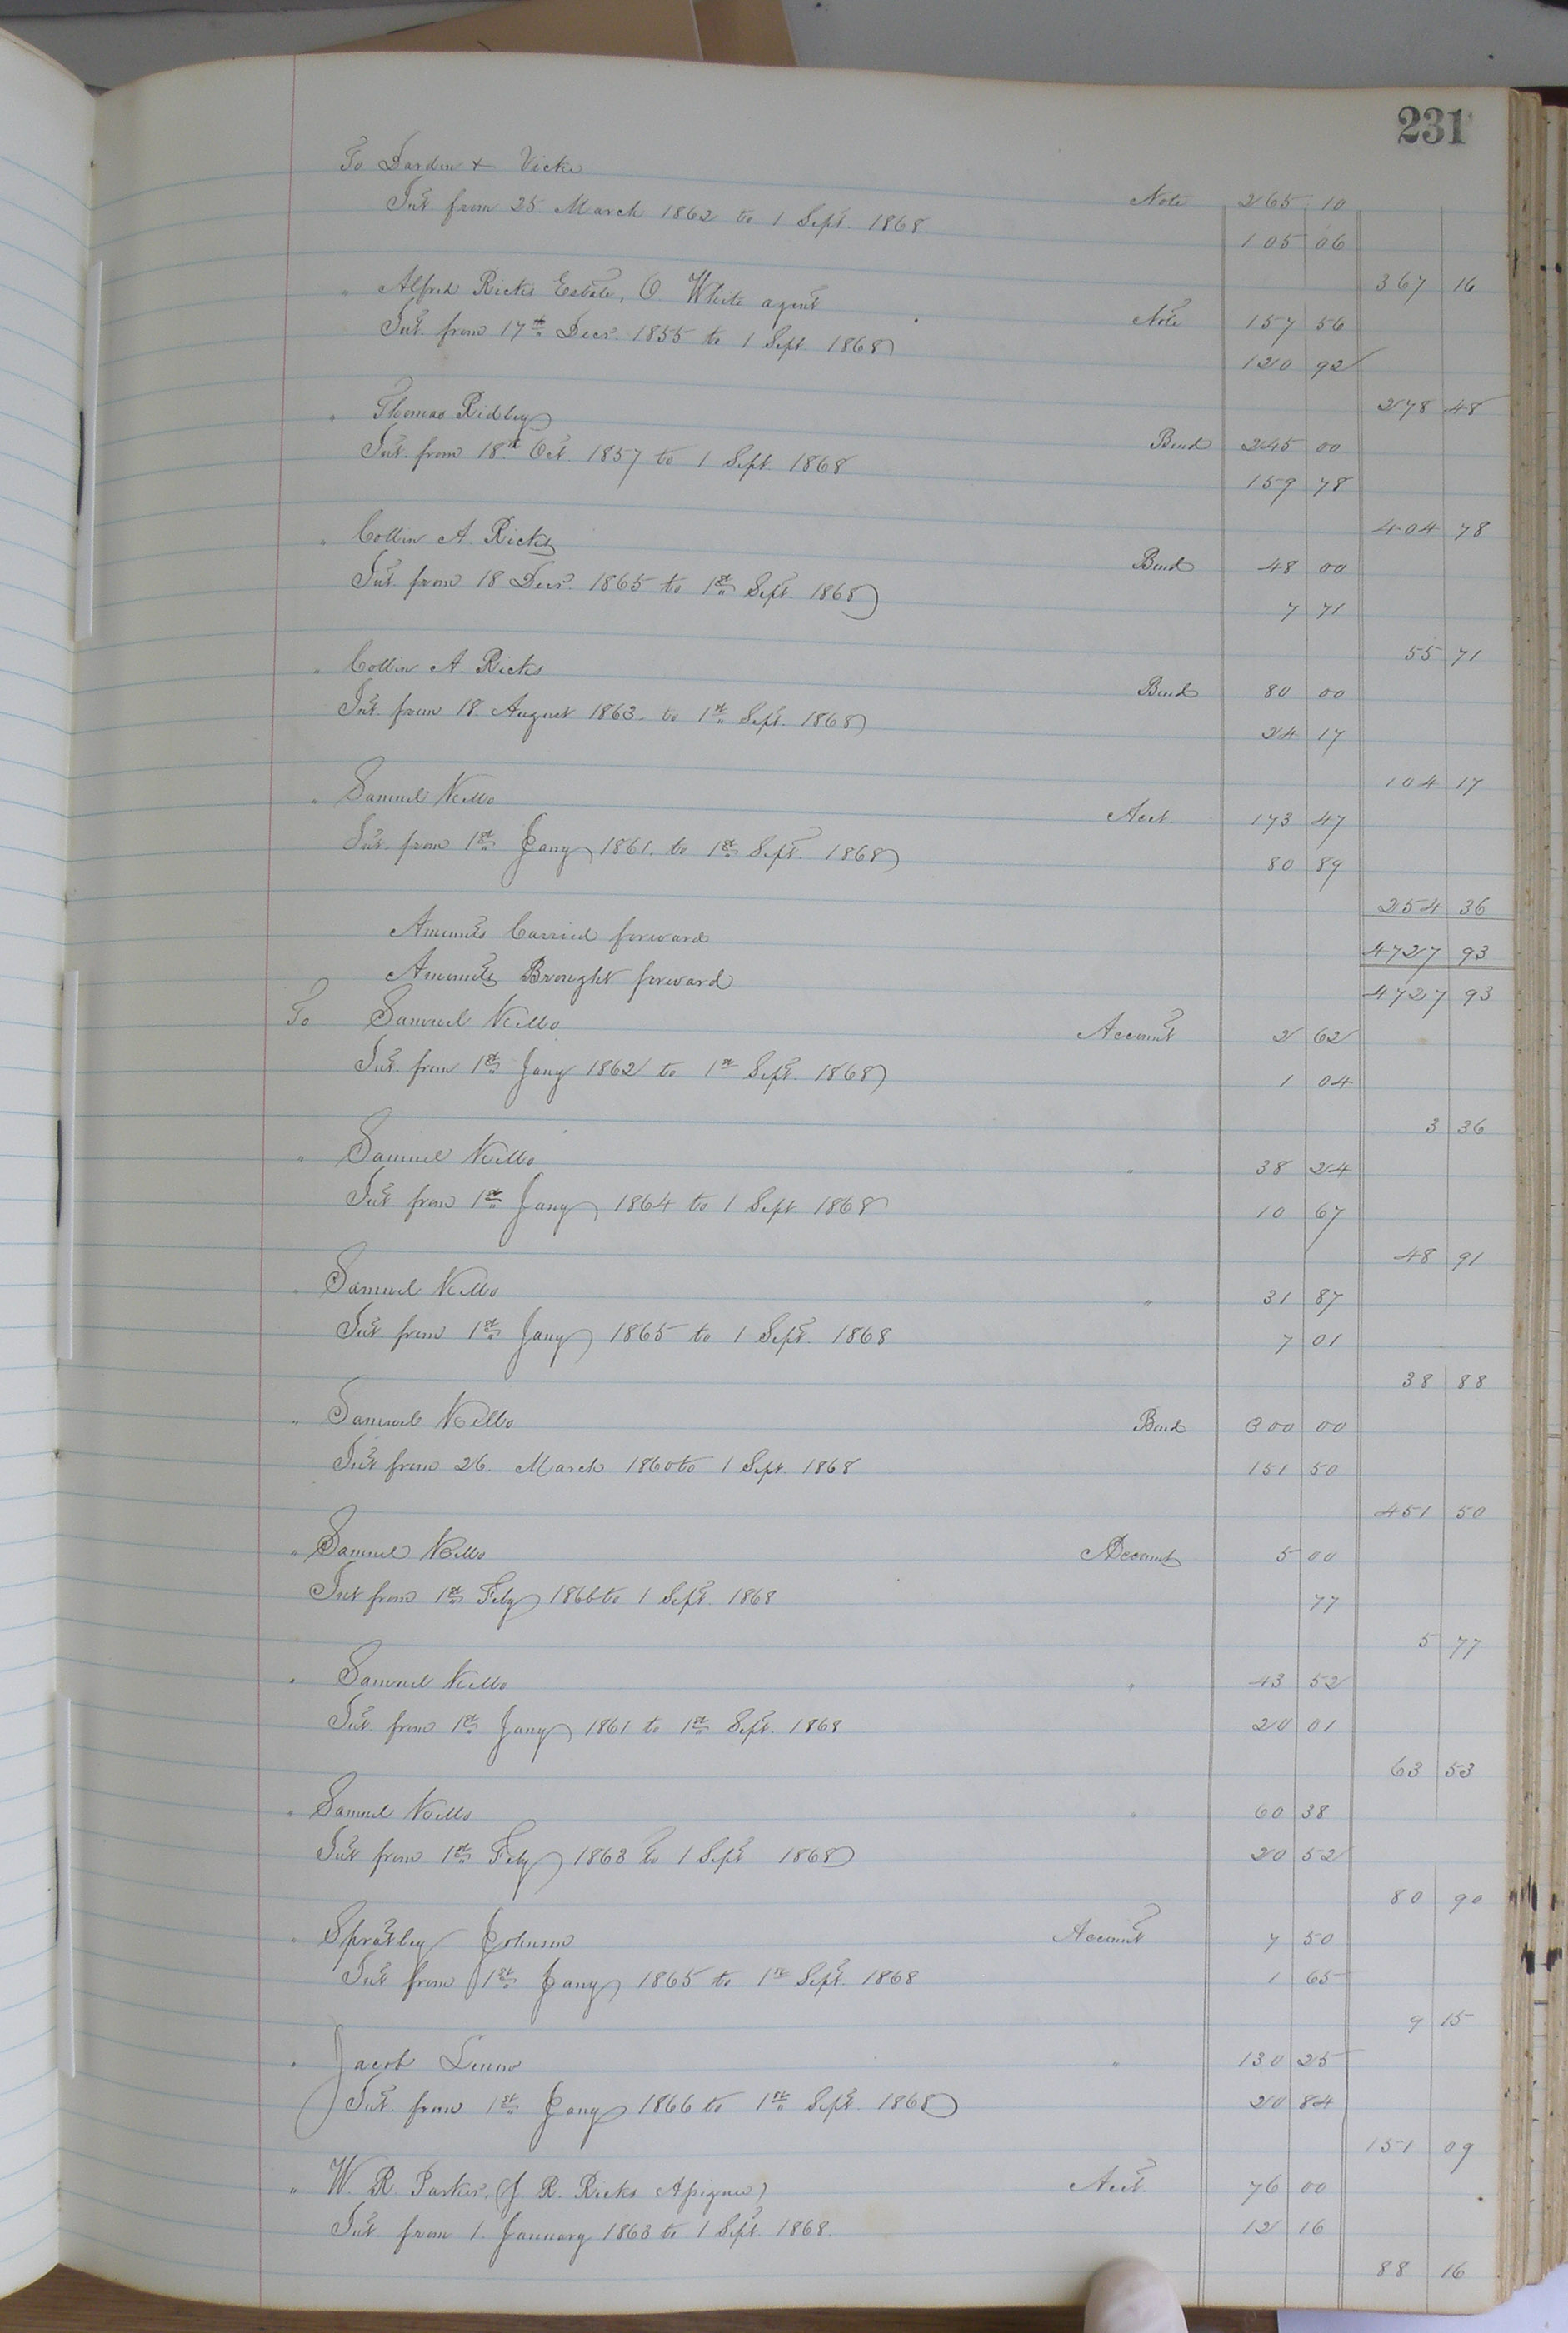 231
To Darden & Vicks
Int from 25 March 1862 to 1 Sept. 1868 Note 265 10
105 06
367 16
" Alfred Ricks Estate, O. White agent
Int. from 17th Decr. 1855 to 1 Sept. 1868 Note 157 56
120 92
278 48
" Thomas Ridley
Int. from 18th Oct. 1857 to 1 Sept 1868 Bond 245 00
159 78
404 78
" Collin A. Ricks
Int. from 18 Decr. 1865 to 1st Sept. 1868 Bond 48 00
7 71
55 71
" Collin A. Ricks
Int. from 18. August 1863. to 1st Sept. 1868 Bond 80 00
24 17
104 17
" Samuel Kello
Int. from 1st Jany 1861. to 1st Sept. 1868 Acct. 173 47
80 89
254 36
Amounts Carried forward 4727 93
Amounts Brought forward 4727 93
To Samuel Kello Account 2 62
Int. from 1st Jany 1862 to 1st Sept. 1868 1 04
3 36
" Samuel Kello " 38 24
Int. from 1st Jany 1864 to 1 Sept 1868 10 67
48 91
" Samuel Kello " 31 87
Int. from 1st Jany 1865 to 1 Sept. 1868 7 01
38 88
" Samuel Kello Bond 300 00
Int from 26. March 1860 to 1 Sept. 1868 151 50
451 50
" Samuel Kello Account 5 00
Int from 1st Feby 1866 to 1 Sept. 1868 77
5 77
" Samuel Kello " 43 52
Int. from 1st Jany 1861 to 1st Sept. 1868 20 01
63 53
" Samuel Kello " 60 38
Int from 1st Feby 1863 to 1 Sept 1868 20 52
80 90
" Spratley Johnson Account 7 50
Int from 1st Jany 1865 to 1st Sept. 1868 1 65
9 15
" Jacob " 130 25
Int. from 1st Jany 1866 to 1st Sept. 1868 20 84
151 09
" W. R. Parker. (J R. Ricks Assignee) Acct. 76 00
Int. from 1. January 1863 to 1 Sept. 1868. 12 16
88 16